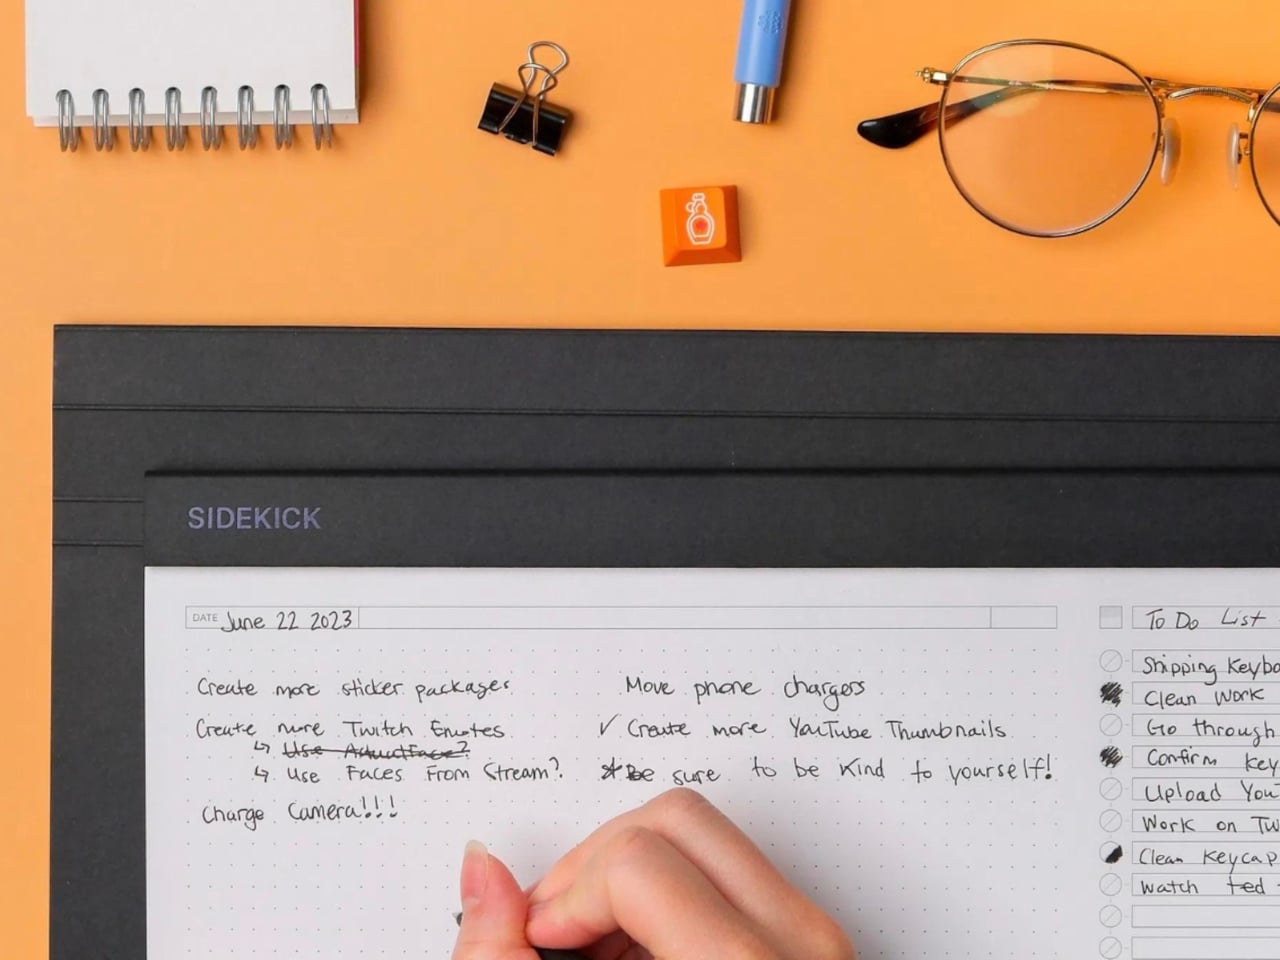 SIDEKICK
DATE June 22 2023
Create more sticker packages
Create more Twitch Emotes
↳ Use Actual Face?
↳ Use Faces From Stream?
Charge Camera!!!
Move phone chargers
✓ Create more YouTube Thumbnails
* Be sure to be kind to yourself!
To Do List
Shipping Keybo
Clean Work
Go through
Confirm Key
Upload You
Work on Tw
Clean Keycap
Watch Ted